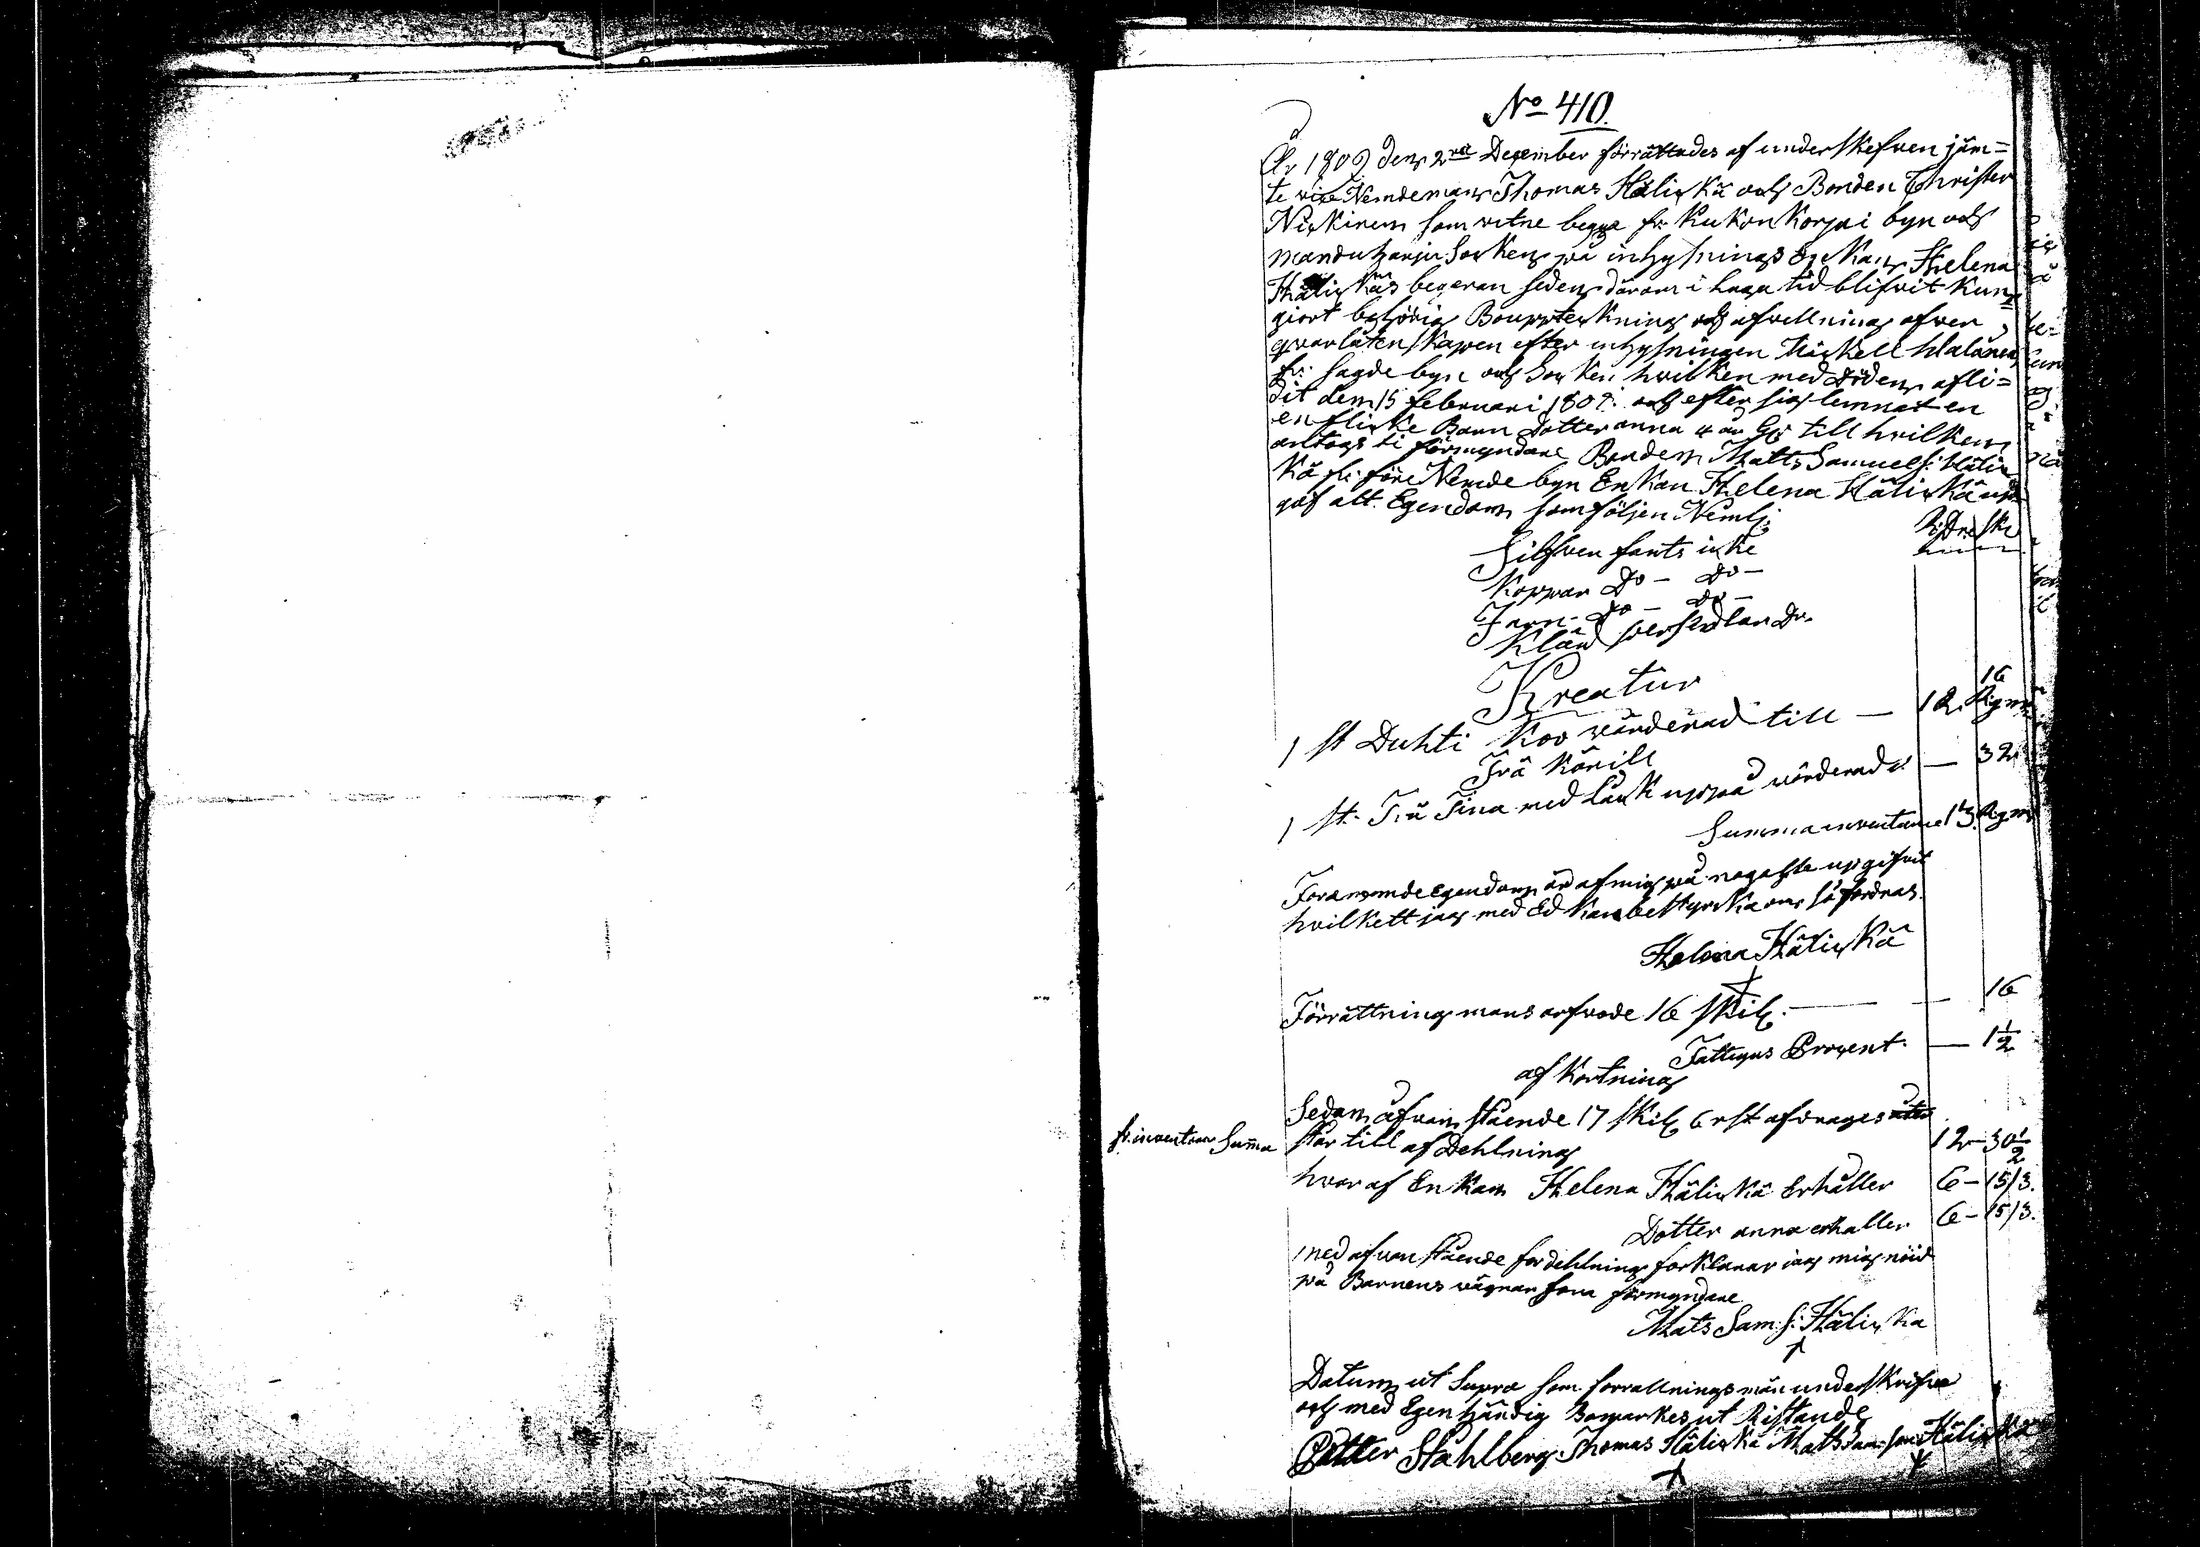 No 410.
År 1809 den 2dra December förrättades af underskrefven jäm=
te vice Nemdeman Thomas Hälickä och Bonden Christer
Nickinen som vitne begga fr: Kukonkorpi byn och
Mänduharju Socken på inhysnings Enkan Helena
Hälickäs begeran seden därom i laga tid blifvit kun=
giort behörig Bouppteckning och afvellning öfver
qvarlåtenskapen efter inhysningen Mickell Halanen
fr: sagde byn och Socken hvilken med döden afli=
dit dem 15 februari 180 och efter sig lemnat en
en flicke Barn dotter anna 4 år till hvilken
antogs ti förmyndare Bonden Matts Samuels: Hälic
kä fr: före Nemde byn Enkan Helena Hälickä up
gaf alt Egendom som följen Nemlj:
Rdr sk
Silfver fants icke
Koppar Do - Do -
Jarn - Do - Do -
Kläd persedlar Do.
Kreatur
1 st Duhti Koo värderad till — 12. 16 Rgm
Trä Käril
1 st. Trä Tina med Låck uppå värderad — 32
Summa inventarie 13 Rgm
Foranemde egendom är af mig på nogaste upgifvit
hvilkett jag med Ed kan bestyrcka om så fordras.
Helena Hälickä
Förrättningsmans arfvode 16 skil. — 16
Fattigas Procent. — 1 1/2
af Kortning
Sedan åfvan stående 17 skil 6 rst afdrages åter
fr. inventarie Summa står till af Dehlning 12 - 30 1/2
hvar af Enkan Helena Hälickä Erhåller 6 - 15/3.
Dotter anna erhaller 6 - 15/3.
med afvan stående fordehlning forklarar jag mig nöid
på Barnens vägnar som förmyndare
Mats Sam: s: Hälickä
Datum ut Supra som forrattningsmän underskrifva
och med Egenhändig Bomarkes ut Ristande
Petter Ståhlberg Thomas Hälickä Mats Sam: son Hälickä